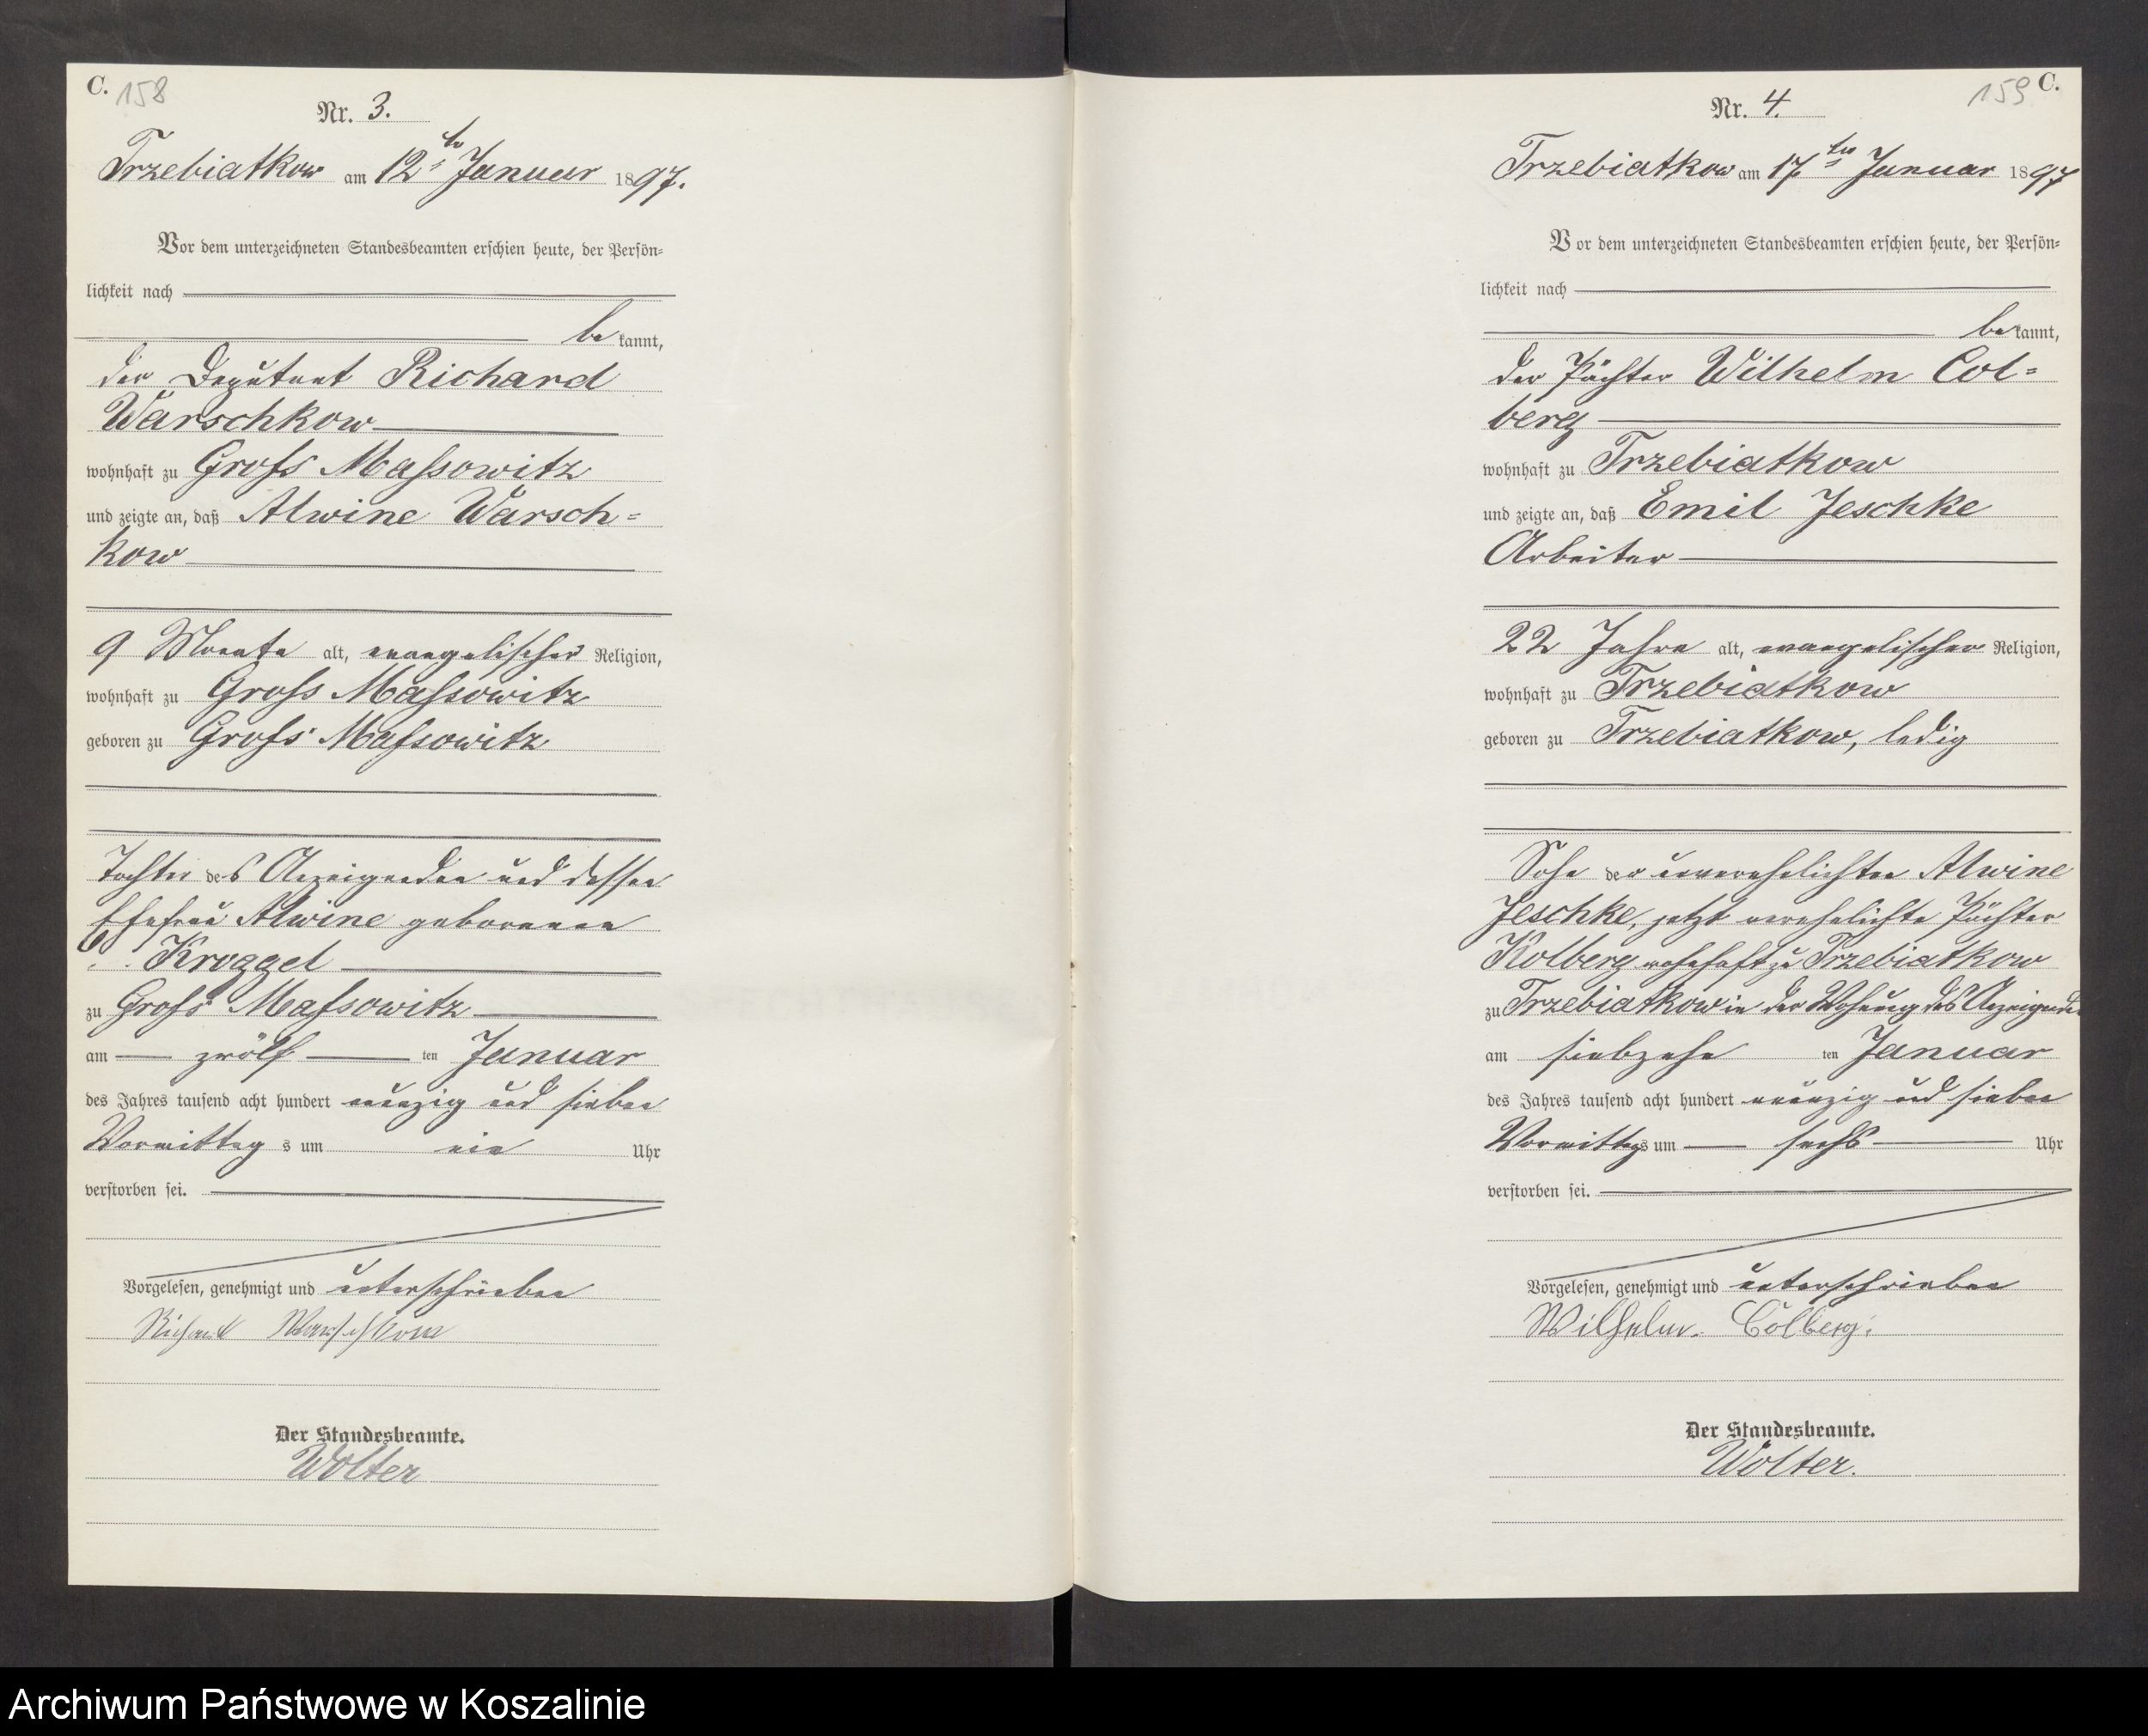 C. 158
Nr. 3.
Trzebiatkow am 12ten Januar 1897.
Vor dem unterzeichneten Standesbeamten erschien heute, der Persön=
lichkeit nach
bekannt,
der Deputant Richard
Warschkow
wohnhaft zu Groß Massowitz
und zeigte an, daß Alwine Warsch=
kow
9 Monate alt, evangelischer Religion,
wohnhaft zu Gross Massowitz
geboren zu Groß Massowitz
Tochter des Anzeigenden und dessen
Ehefrau Alwine geborenen
Kroggel
zu Groß Massowitz
am zwölf ten Januar
des Jahres tausend acht hundert neunzig und sieben
Vormittag s um ein Uhr
verstorben sei.
Vorgelesen, genehmigt und unterschrieben
Richard Warschkow
Der Standesbeamte.
Wolter
159 C.
Nr. 4.
Trzebiatkow am 17ten Januar 1897
Vor dem unterzeichneten Standesbeamten erschien heute, der Persön=
lichkeit nach
bekannt,
der Pächter Wilhelm Col=
berg
wohnhaft zu Trzebiatkow
und zeigte an, daß Emil Jeschke
Arbeiter
22 Jahre alt, evangelischer Religion,
wohnhaft zu Trzebiatkow
geboren zu Trzebiatkow, ledig
Sohn der unverehelichten Alwine
Jeschke, jetzt verehelichte Pächter
Kolberg wohnhaft zu Trzebiatkow
zu Trzebiatkow in der Wohnung des Anzeigenden
am siebzehn ten Januar
des Jahres tausend acht hundert neunzig und sieben
Vormittags um sechs Uhr
verstorben sei.
Vorgelesen, genehmigt und unterschrieben
Wilhelm Colberg.
Der Standesbeamte.
Wolter.
Archiwum Państwowe w Koszalinie